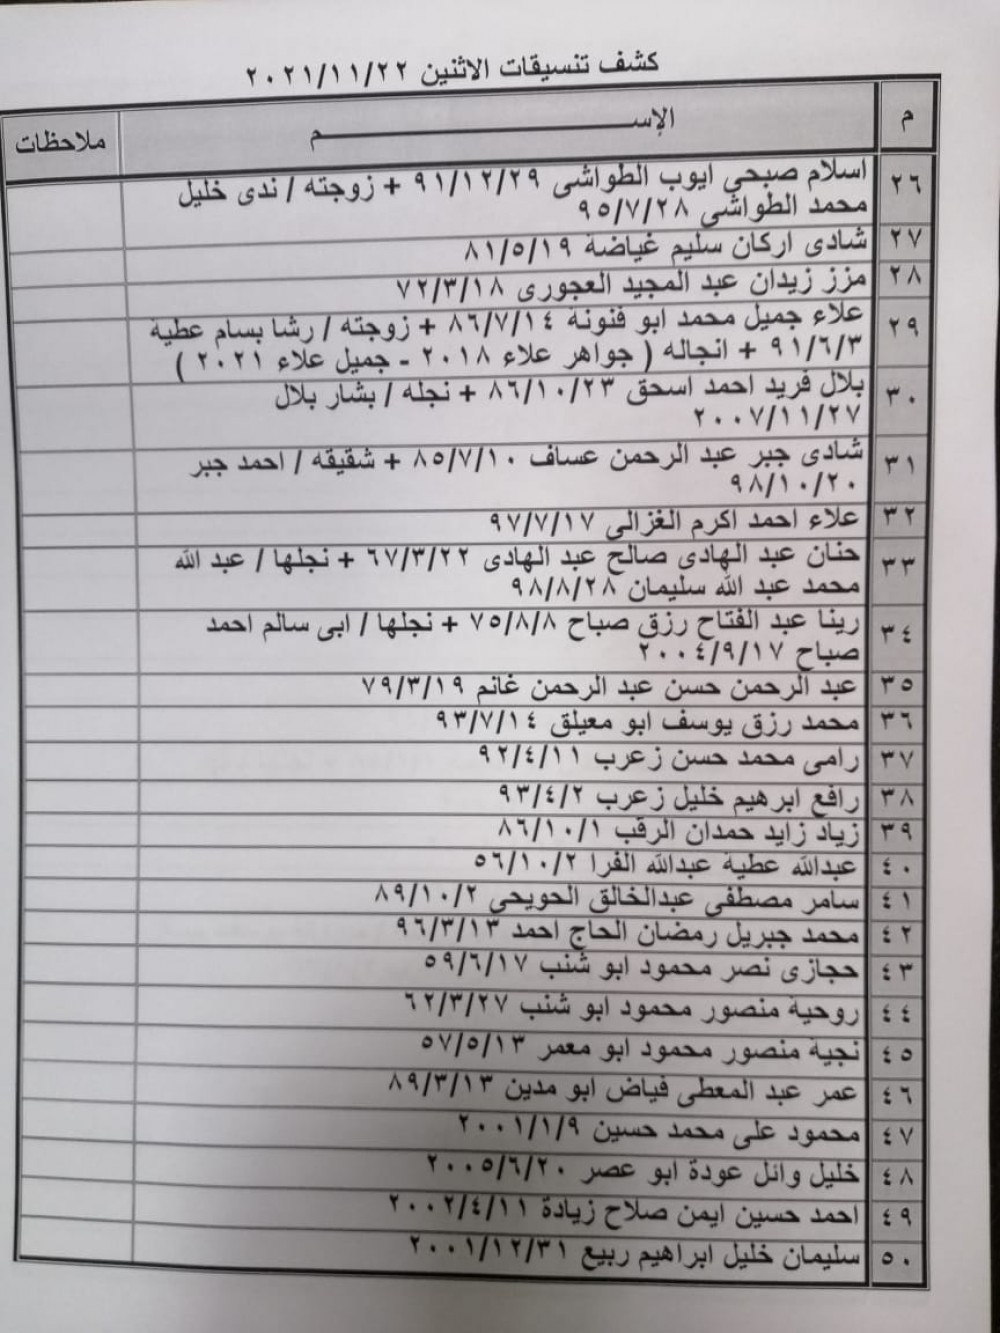 كشف تنسيقات الاثنين ٢٠٢١/١١/٢٢
م الإســـــــــــــــــم ملاحظات
٢٦ اسلام صبحى ايوب الطواشى ٩١/١٢/٢٩ + زوجته / ندى خليل
محمد الطواشى ٩٥/٧/٢٨
٢٧ شادى اركان سليم غياضة ٨١/٥/١٩
٢٨ مزز زيدان عبد المجيد العجورى ٧٢/٣/١٨
٢٩ علاء جميل محمد ابو فنونة ٨٦/٧/١٤ + زوجته / رشا بسام عطية
٩١/٦/٣ + انجاله ( جواهر علاء ٢٠١٨ - جميل علاء ٢٠٢١ )
٣٠ بلال فريد احمد اسحق ٨٦/١٠/٢٣ + نجله / بشار بلال
٢٠٠٧/١١/٢٧
٣١ شادى جبر عبد الرحمن عساف ٨٥/٧/١٠ + شقيقه / احمد جبر
٩٨/١٠/٢٠
٣٢ علاء احمد اكرم الغزالى ٩٧/٧/١٧
٣٣ حنان عبد الهادى صالح عبد الهادى ٦٧/٣/٢٢ + نجلها / عبد الله
محمد عبد الله سليمان ٩٨/٨/٢٨
٣٤ رينا عبد الفتاح رزق صباح ٧٥/٨/٨ + نجلها / ابى سالم احمد
صباح ٢٠٠٤/٩/١٧
٣٥ عبد الرحمن حسن عبد الرحمن غانم ٧٩/٣/١٩
٣٦ محمد رزق يوسف ابو معيلق ٩٣/٧/١٤
٣٧ رامى محمد حسن زعرب ٩٢/٤/١١
٣٨ رافع ابرهيم خليل زعرب ٩٣/٤/٢
٣٩ زياد زايد حمدان الرقب ٨٦/١٠/١
٤٠ عبدالله عطية عبدالله الفرا ٥٦/١٠/٢
٤١ سامر مصطفى عبدالخالق الحويحى ٨٩/١٠/٢
٤٢ محمد جبريل رمضان الحاج احمد ٩٦/٣/١٣
٤٣ حجازى نصر محمود ابو شنب ٥٩/٦/١٧
٤٤ روحية منصور محمود ابو شنب ٦٢/٣/٢٧
٤٥ نجية منصور محمود ابو معمر ٥٧/٥/١٣
٤٦ عمر عبد المعطى فياض ابو مدين ٨٩/٣/١٣
٤٧ محمود على محمد حسين ٢٠٠١/١/٩
٤٨ خليل وائل عودة ابو عصر ٢٠٠٥/٦/٢٠
٤٩ احمد حسين ايمن صلاح زيادة ٢٠٠٢/٤/١١
٥٠ سليمان خليل ابراهيم ربيع ٢٠٠١/١٢/٣١